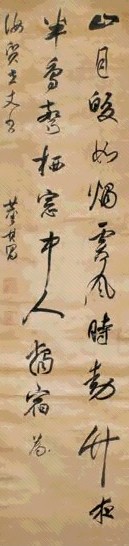 山月皎如燭霜風時動竹夜
半鳥驚栖窓中人獨宿為
老丈書
董其昌